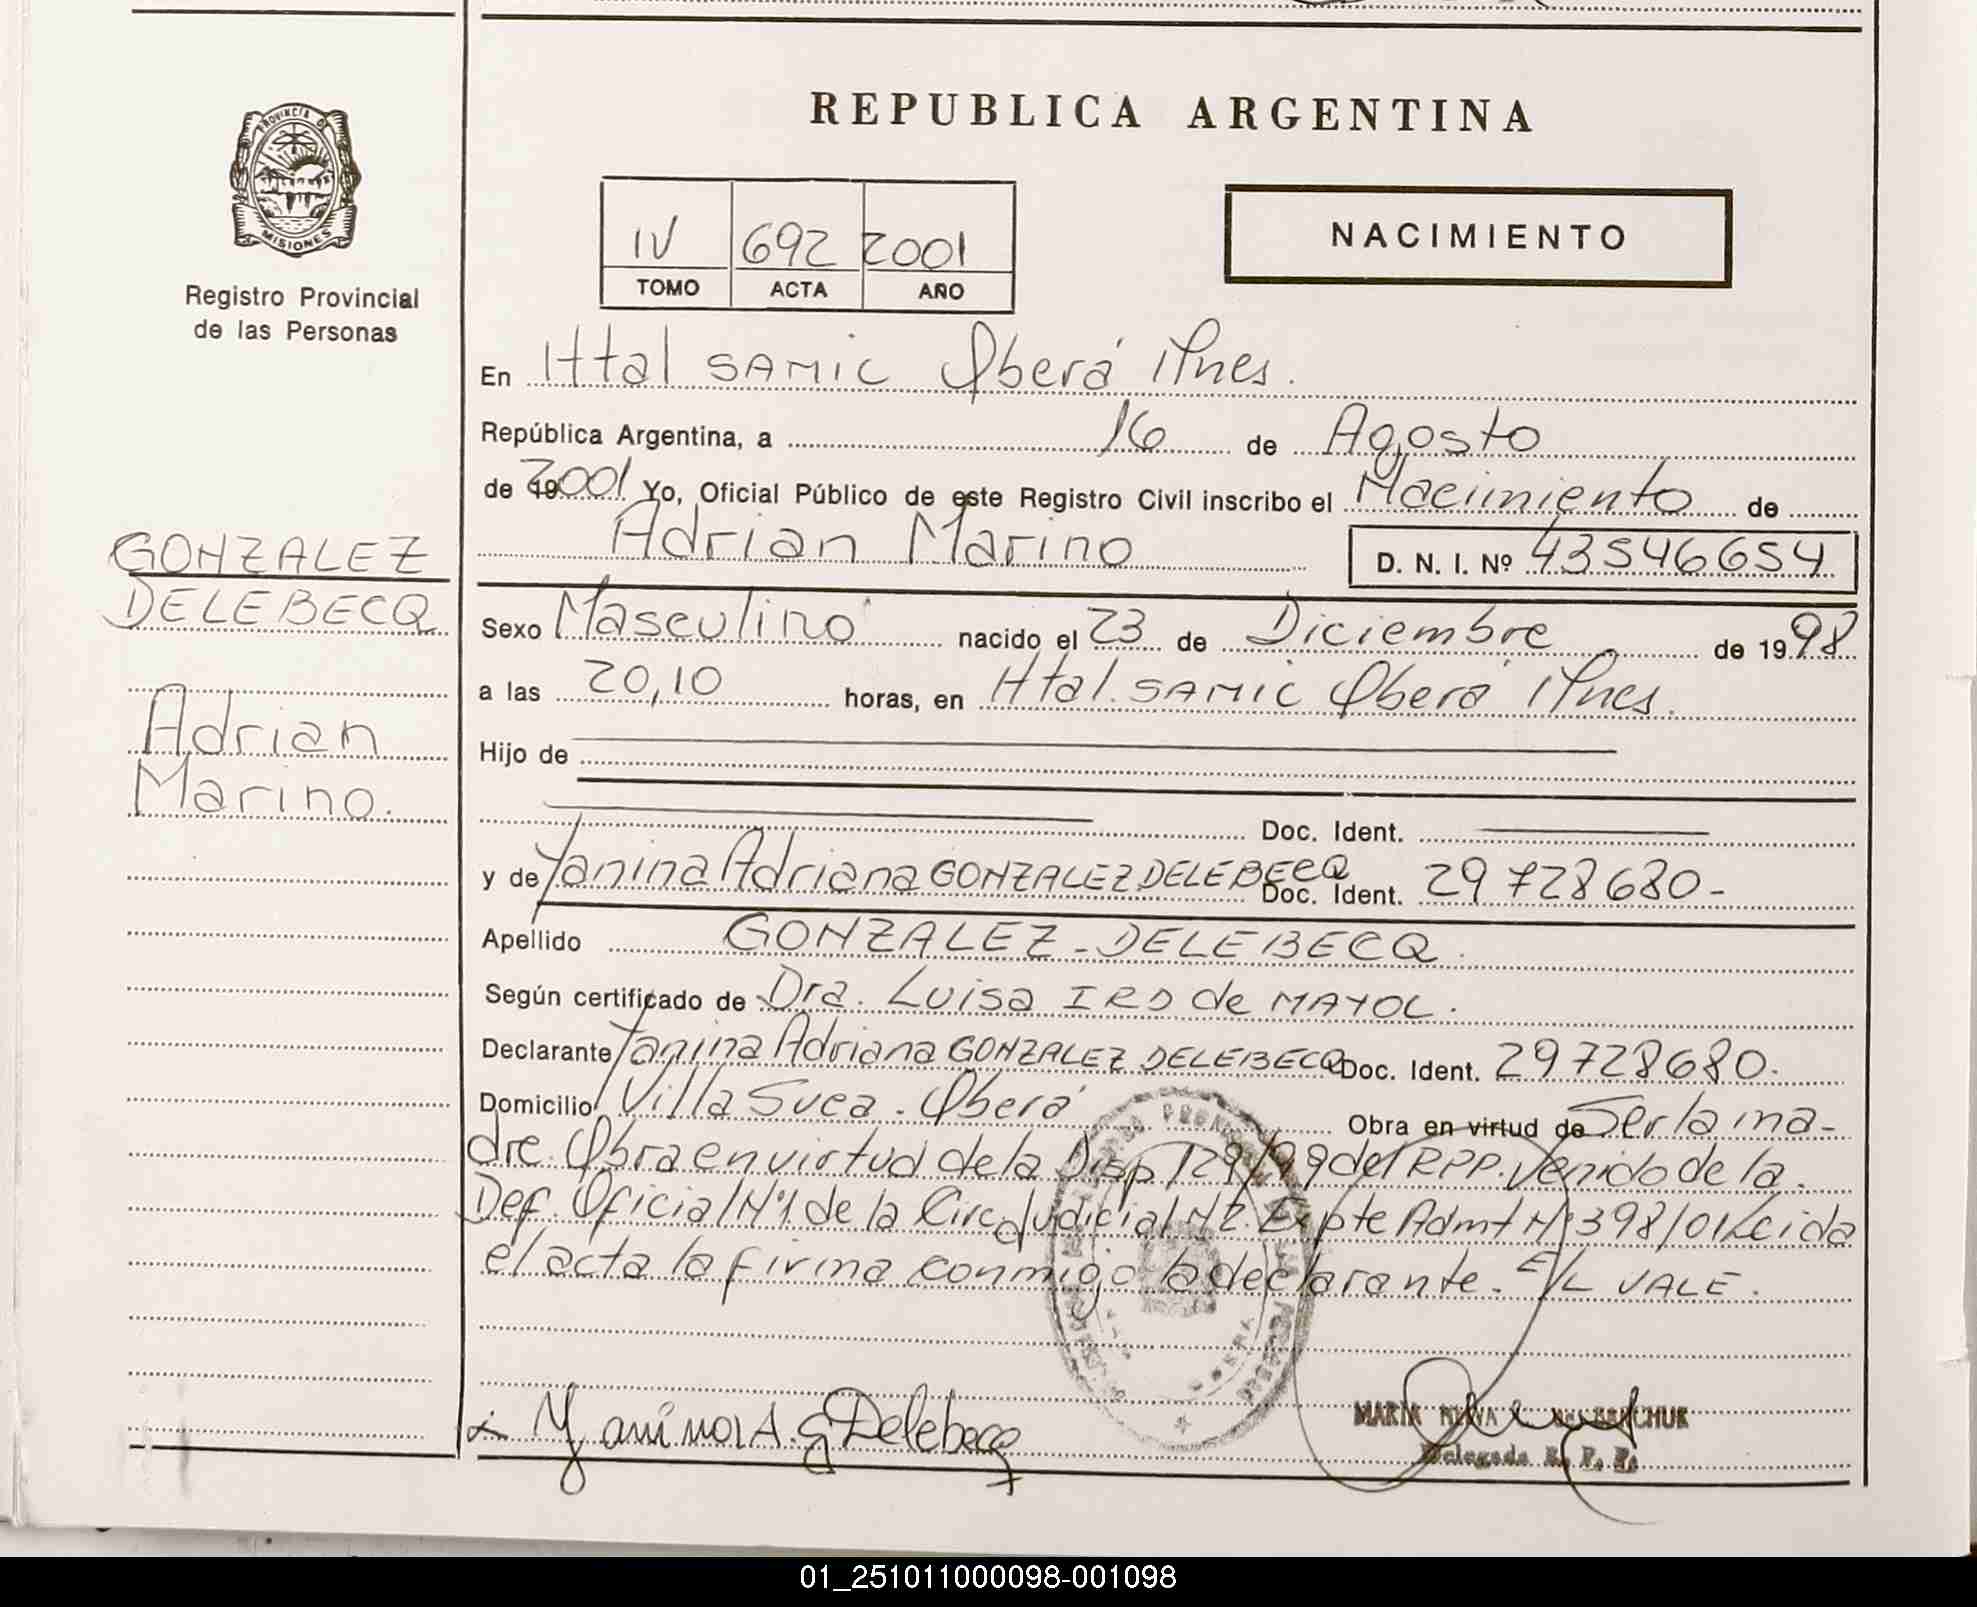 REPUBLICA ARGENTINA
PROVINCIA DE
MISIONES
Registro Provincial
de las Personas
IV 692 2001
TOMO ACTA AÑO
NACIMIENTO
En Httal SAMIC Oberá Mnes.
República Argentina, a 16 de Agosto
de 2001 Yo, Oficial Público de este Registro Civil inscribo el Nacimiento de
Adrian Marino D. N. I. Nº 43546654
GONZALEZ
DELEBECQ
Adrian
Marino.
Sexo Masculino nacido el 23 de Diciembre de 1998
a las 20,10 horas, en Httal. SAMIC Oberá Mnes.
Hijo de
Doc. Ident.
y de Yanina Adriana GONZALEZ DELEBECQ Doc. Ident. 29728680-
Apellido GONZALEZ-DELEBECQ.
Según certificado de Dra. Luisa IRO de MAYOL.
Declarante Yanina Adriana GONZALEZ DELEBECQ Doc. Ident. 29728680.
Domicilio Villa Svea. Oberá Obra en virtud de Ser la ma-
dre. Obra en virtud de la Disp 129/99 del RPP. Venido de la
Def. Oficial Nº1. de la Circ. Judicial Nº2. Expte Admt Nº 398/01 Leida
el acta la firma conmigo la declarante. E/L VALE.
Yanina A. G Delebecq
MARIA
Delegada R. P. P.
01_251011000098-001098